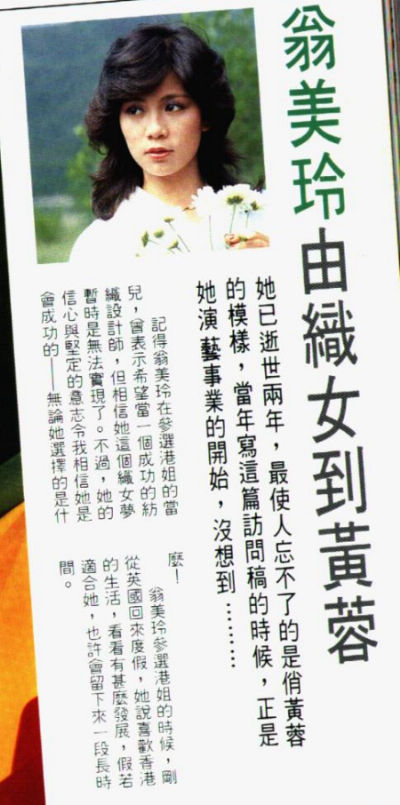 翁美玲由織女到黃蓉
她已逝世兩年，最使人忘不了的是俏黃蓉
的模樣，當年寫這篇訪問稿的時候，正是
她演藝事業的開始，沒想到………
記得翁美玲在參選港姐的當
兒，曾表示希望當一個成功的紡
織設計師，但相信她這個織女夢
暫時是無法實現了。不過，她的
信心與堅定的意志令我相信她是
會成功的——無論她選擇的是什
麼！
翁美玲參選港姐的時候，剛
從英國回來度假，她說喜歡香港
的生活，看看有甚麼發展，假若
適合她，也許會留下來一段長時
間。